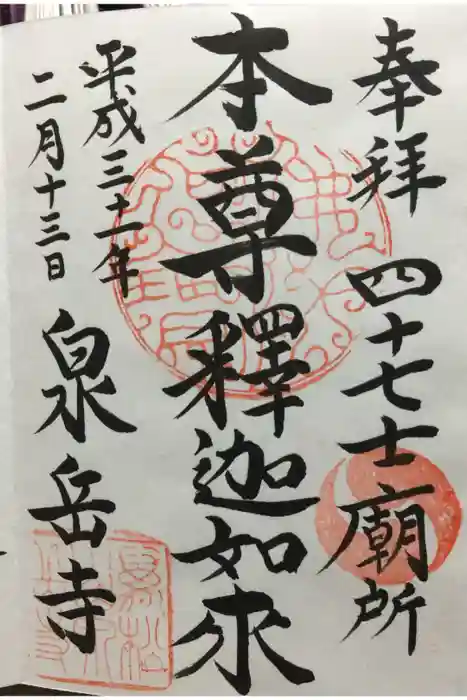 奉拝 四十七士廟所
本尊釋迦如来
平成三十一年
二月十三日
泉岳寺